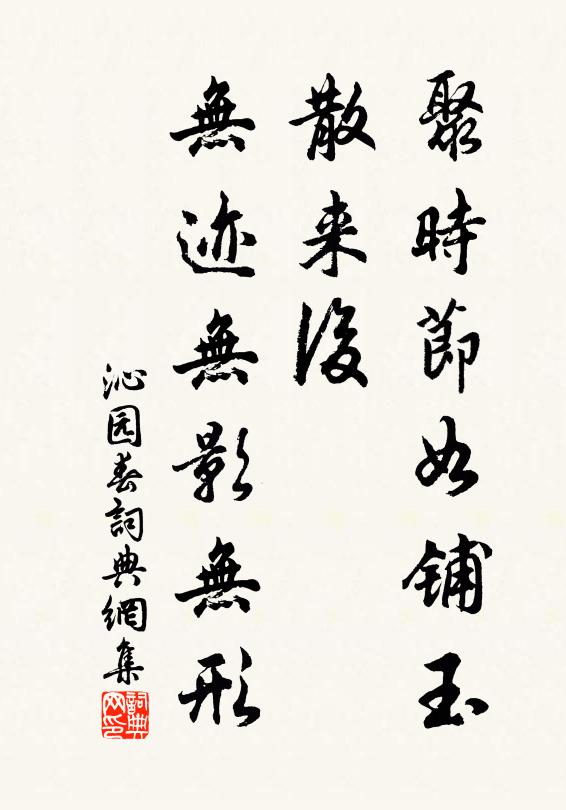 聚時節如鋪玉
散来後
無迹無影無形
沁园春詞典網集
詞典网印